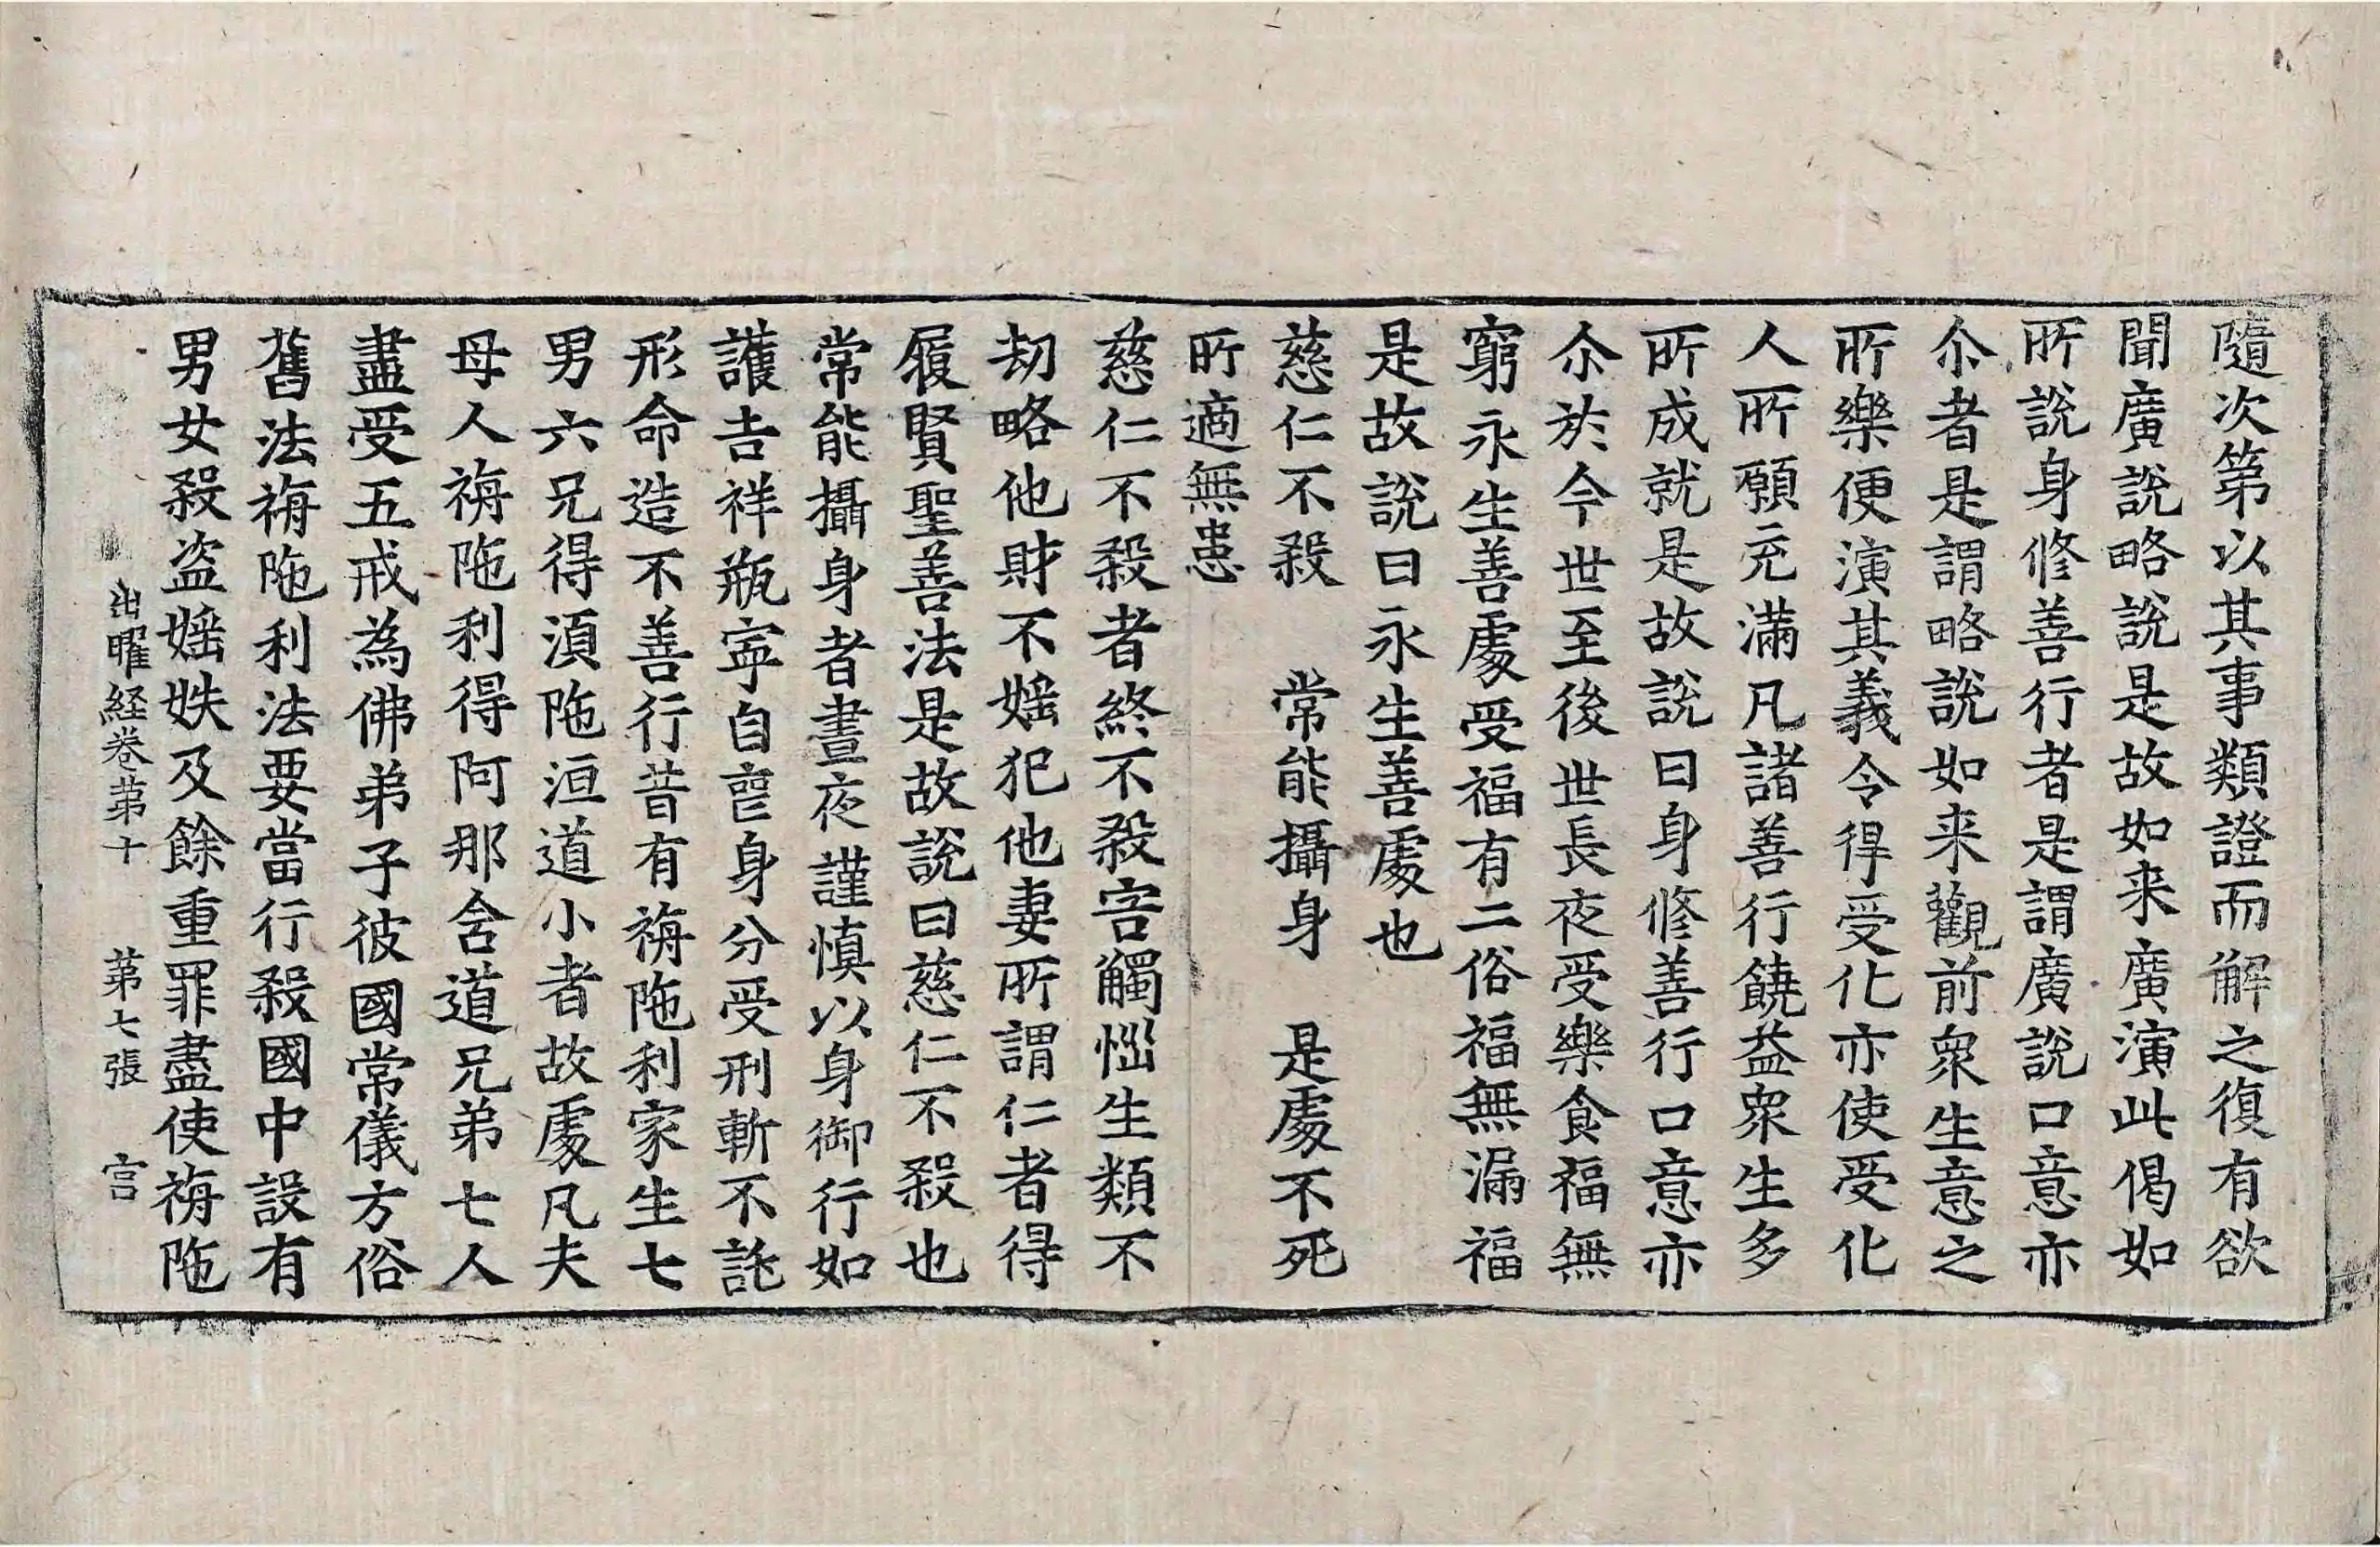 隨次第以其事類證而解之復有欲
聞廣說略說是故如来廣演此偈如
所說身修善行者是謂廣說口意亦
尒者是謂略說如来觀前衆生意之
所樂便演其義令得受化亦使受化
人所願充滿凡諸善行饒益衆生多
所成就是故說曰身修善行口意亦
尒於今世至後世長夜受樂食福無
窮永生善處受福有二俗福無漏福
是故說曰永生善處也
慈仁不殺　常能攝身　是處不死
所適無患
慈仁不殺者終不殺害觸惱生類不
劫略他財不婬犯他妻所謂仁者得
履賢聖善法是故說曰慈仁不殺也
常能攝身者晝夜謹慎以身御行如
護吉祥瓶寧自喪身分受刑斬不託
形命造不善行昔有栴陁利家生七
男六兄得湏陁洹道小者故處凡夫
母人栴陁利得阿那舍道兄弟七人
盡受五戒為佛弟子彼國常儀方俗
舊法栴陁利法要當行殺國中設有
男女殺盜婬妷及餘重罪盡使栴陁
出曜経卷苐十　苐七張　宫